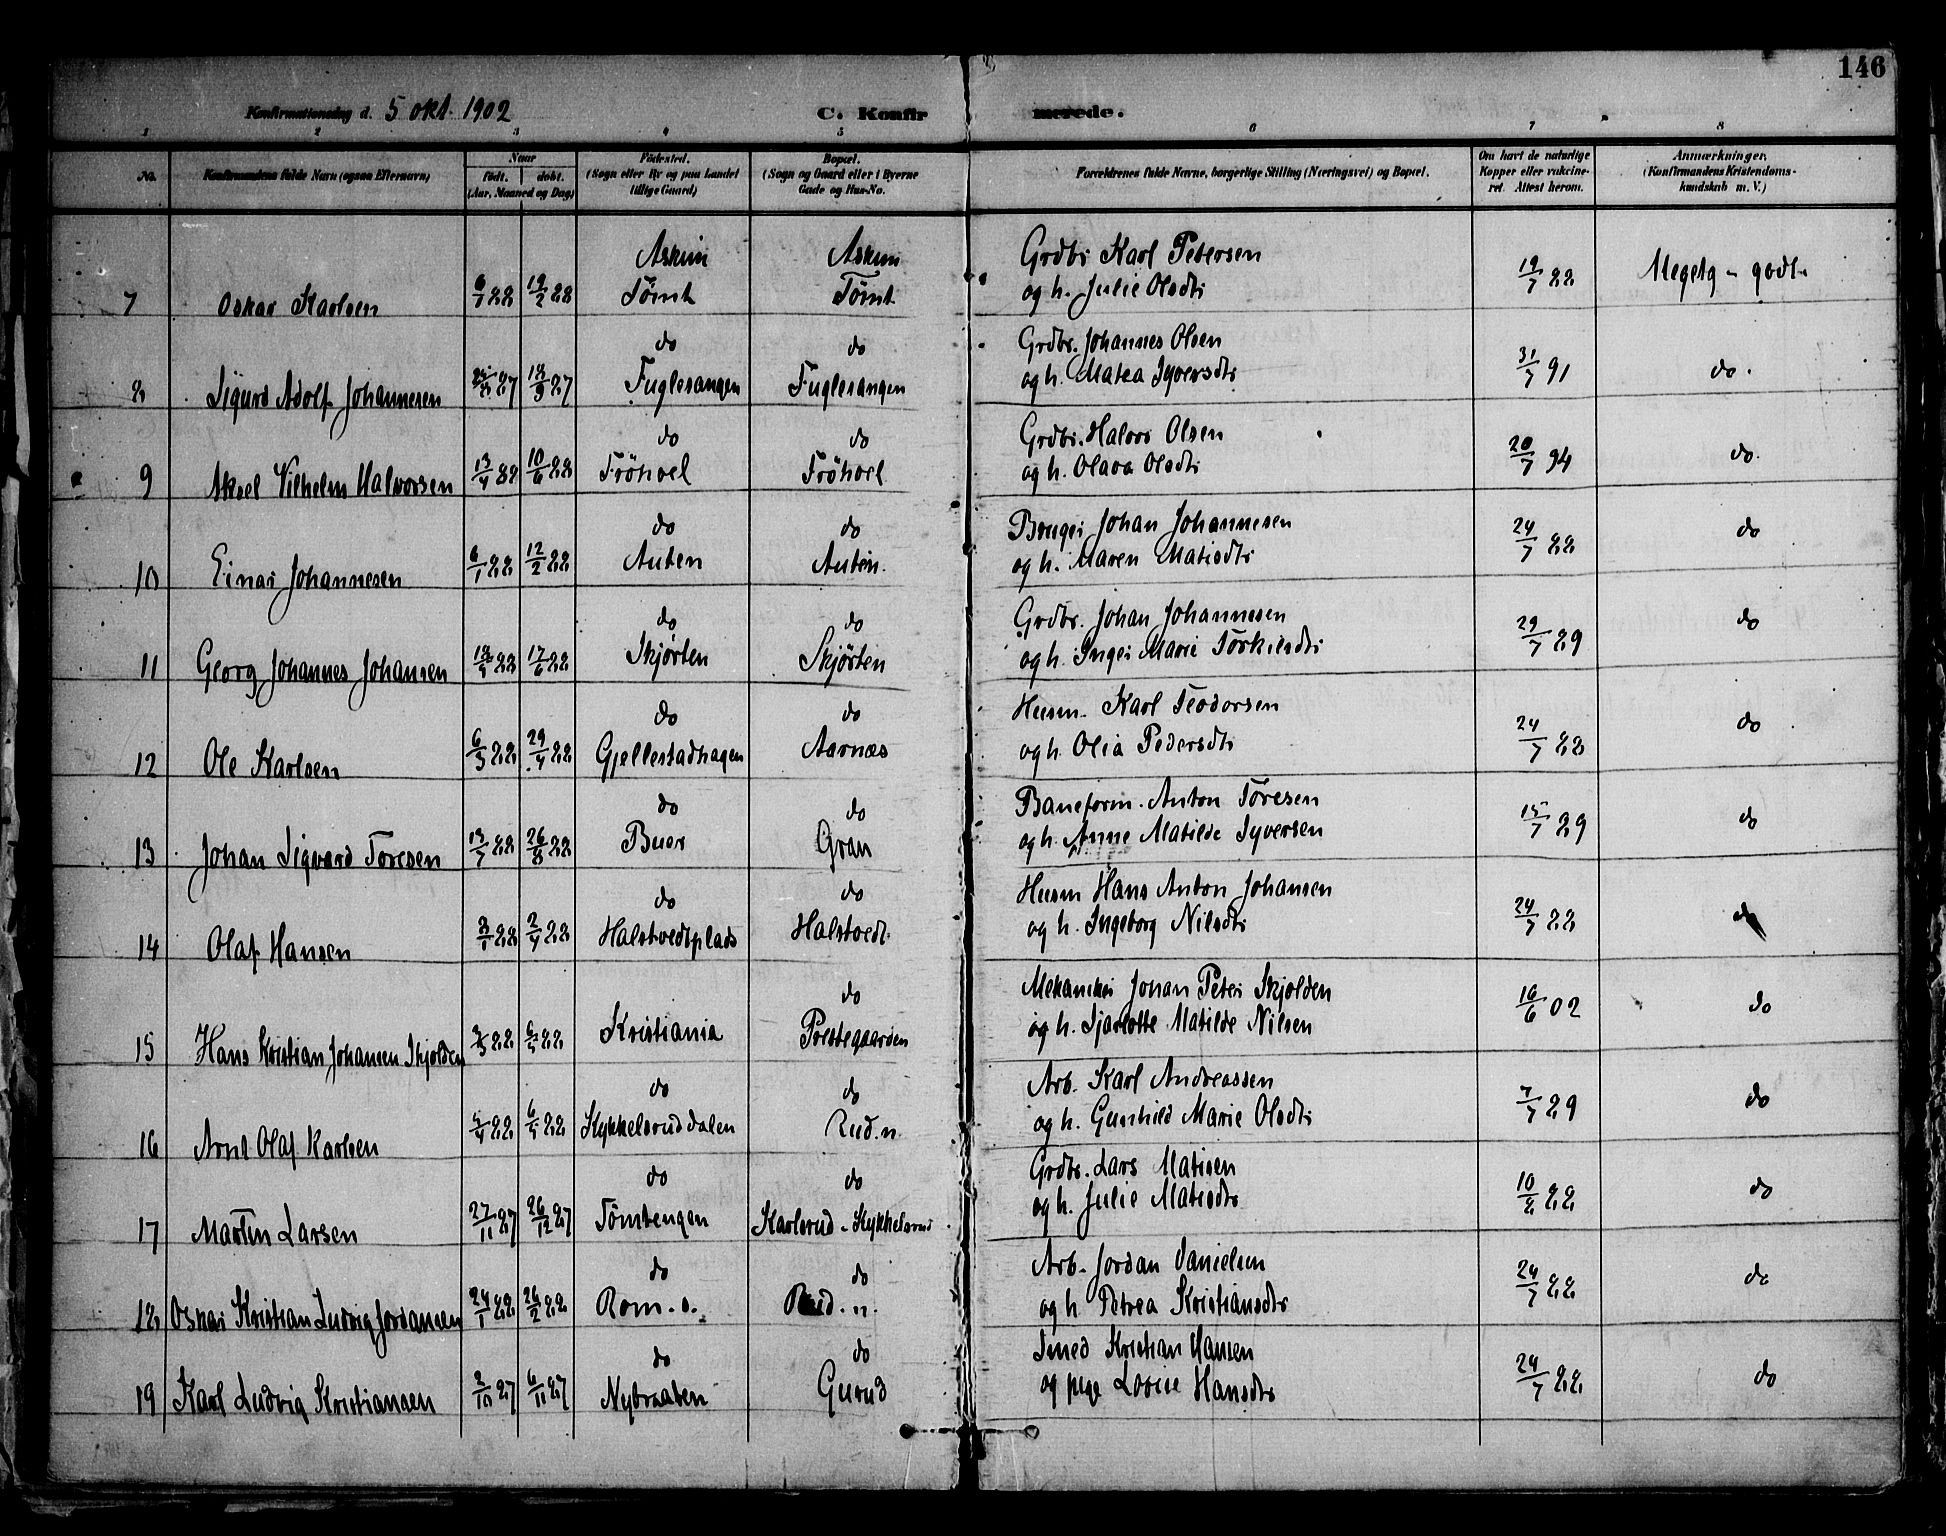 146
Konfirmationsdag d. 5 okt. 1902 C. Konfirmerede.
1 2 3 4 5 6 7 8
No. Konfirmandens fulde Navn (ogsaa Efternavn) Naar født. døbt. (Aar, Maaned og Dag) Fødested. (Sogn eller By og paa Landet tillige Gaard) Bopæl. (Sogn og Gaard eller i Byerne Gade og Hus-No. Forældrenes fulde Navne, borgerlige Stilling (Næringsvei) og Bopæl. Om havt de naturlige Kopper eller vakcineret. Attest herom. Anmærkninger. (Konfirmandens Kristendomskundskab m. V.)
Askim Askim Grdbr Karl Petersen
7 Oskar Karlsen 6/1 88 19/2 88 Tömt Tömt og h. Julie Olsdtr 19/7 88 Megetg - godt.
do do Grdbr. Johannes Olsen
8 Sigurd Adolf Johannesen 87 18/9 87 Fuglesangen Fuglesangen og h. Matea Syversdtr 31/7 91 do.
do do Grdbr. Halvor Olsen
9 Aksel Vilhelm Halvorsen 13/4 88 10/6 88 Fröhoel Fröhoel og h. Olava Olsdtr 20/7 94 do.
do do Bruger Johan Johannesen
10 Einar Johannesen 6/1 88 12/2 88 Auten Auten. og h. Maren Matisdtr 24/7 88 do
do do Grdbr. Johan Johannesen
11 Georg Johannes Johansen 88 17/6 88 Skjørten Skjørten og h. Inger Marie Torkilsdtr 29/7 89 do
do do Husm. Karl Teodorsen
12 Ole Karlsen 6/3 88 29/4 88 Gjellestadhagen Aarnæs og h. Olia Pedersdtr 24/7 88 do
do do Baneform. Anton Toresen
13 Johan Sigvard Toresen 13/7 88 26/8 88 Buer Gran og h. Anne Matilde Syversen 15/7 89 do
do do Husm Hans Anton Johansen
14 Olaf Hansen 88 2/4 88 Halstvedtplads Halstvedt. og h. Ingeborg Nilsdtr 24/7 88 do
do Mekaniker Johan Peter Skjolden
15 Hans Kristian Johansen Skjolden 88 88 Kristiania Prestegaarden og h. Sjarlotte Matilde Nilsen 16/6 02 do
do do Arb. Karl Andreassen
16 Arnt Olaf Karlsen 88 88 Kykkelsruddalen Rud. n. og h. Gunhild Marie Olsdtr 7/7 89 do
do do Grdbr. Lars Matisen
17 Martin Larsen 27/11 87 26/12 87 Tömtengen Karlsrud - Kykkelsrud og h. Julie Matisdtr 10/8 88 do
do do Arb. Jordan Danielsen
18 Oskar Kristian Ludvig Jordansen 24/1 88 26/2 88 Rom. s. Rud. n. og h. Petrea Kristiansdtr 24/7 88 do
do do Smed Kristian Hansen
19 Karl Ludvig Kristiansen 2/10 87 6/11 87 Nybraaten Gurud og pige Lovise Hansdtr 24/7 88 do